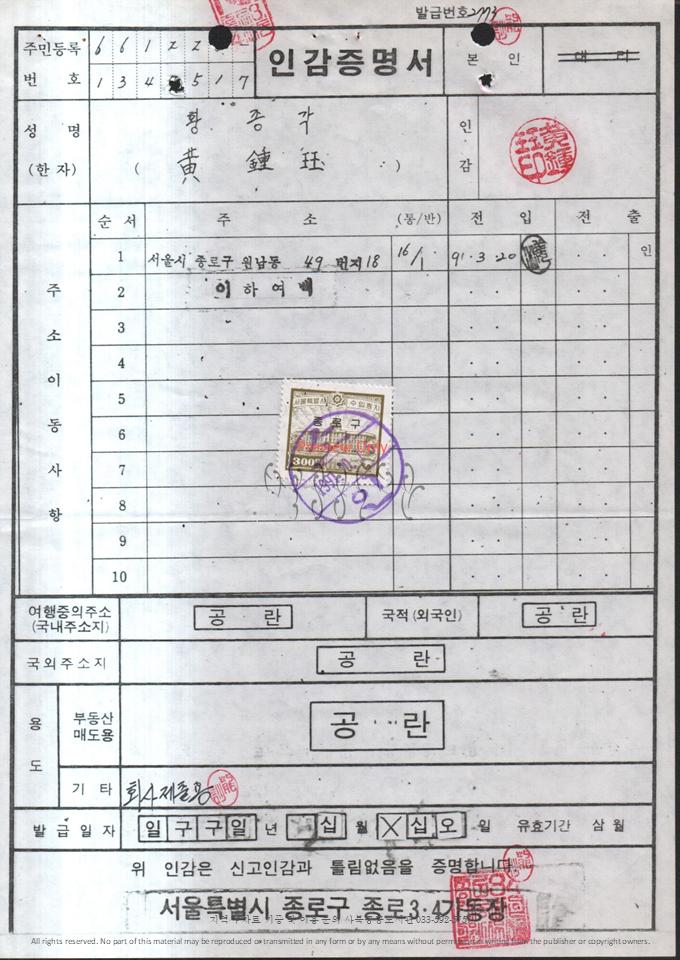 발급번호 2773
주민등록 번호
인감증명서
본인
대리
1 3 4 5 1 7
성명 황종각
(한자) (黃鍾珏)
인감
순서 주소 (통/반) 전입 전출
주소이동사항
1 서울시 종로구 원남동 49 번지 18 16/1 91. 3. 20 인
2 이하여백
3
4
5
서울특별시 수입증지
종로구
6
Review Only
7
300
8
9
10
여행중의주소 (국내주소지) 공란 국적(외국인) 공란
국외주소지 공란
용도
부동산 매도용 공란
기타 회사제출용
발급일자 일구구일 년 십 월 십오 일 유효기간 삼월
위 인감은 신고인감과 틀림없음을 증명합니다.
서울특별시 종로구 종로3·4가동장
All rights reserved. No part of this material may be reproduced or transmitted in any form or by any means without permission in writing from the publisher or copyright owners.